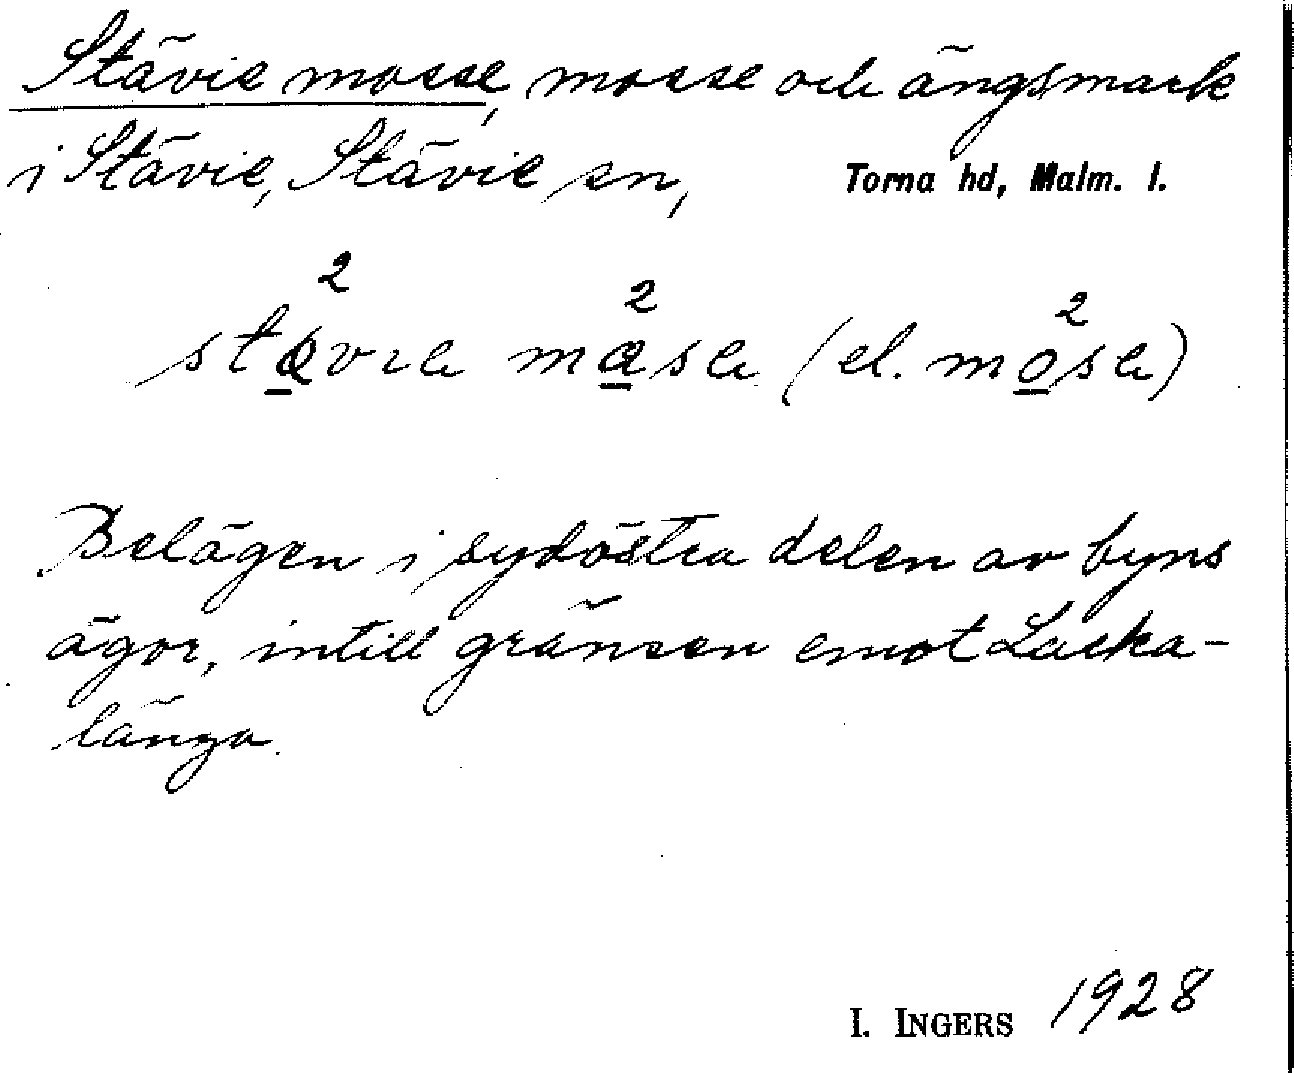 Stävie mosse, mosse och ängsmark
i Stävie, Stävie sn, Torna hd, Malm. l.
(el. mose)
Belägen i sydöstra delen av byns
ägor, intill gränsen emot Lacka-
länga.
I. INGERS 1928